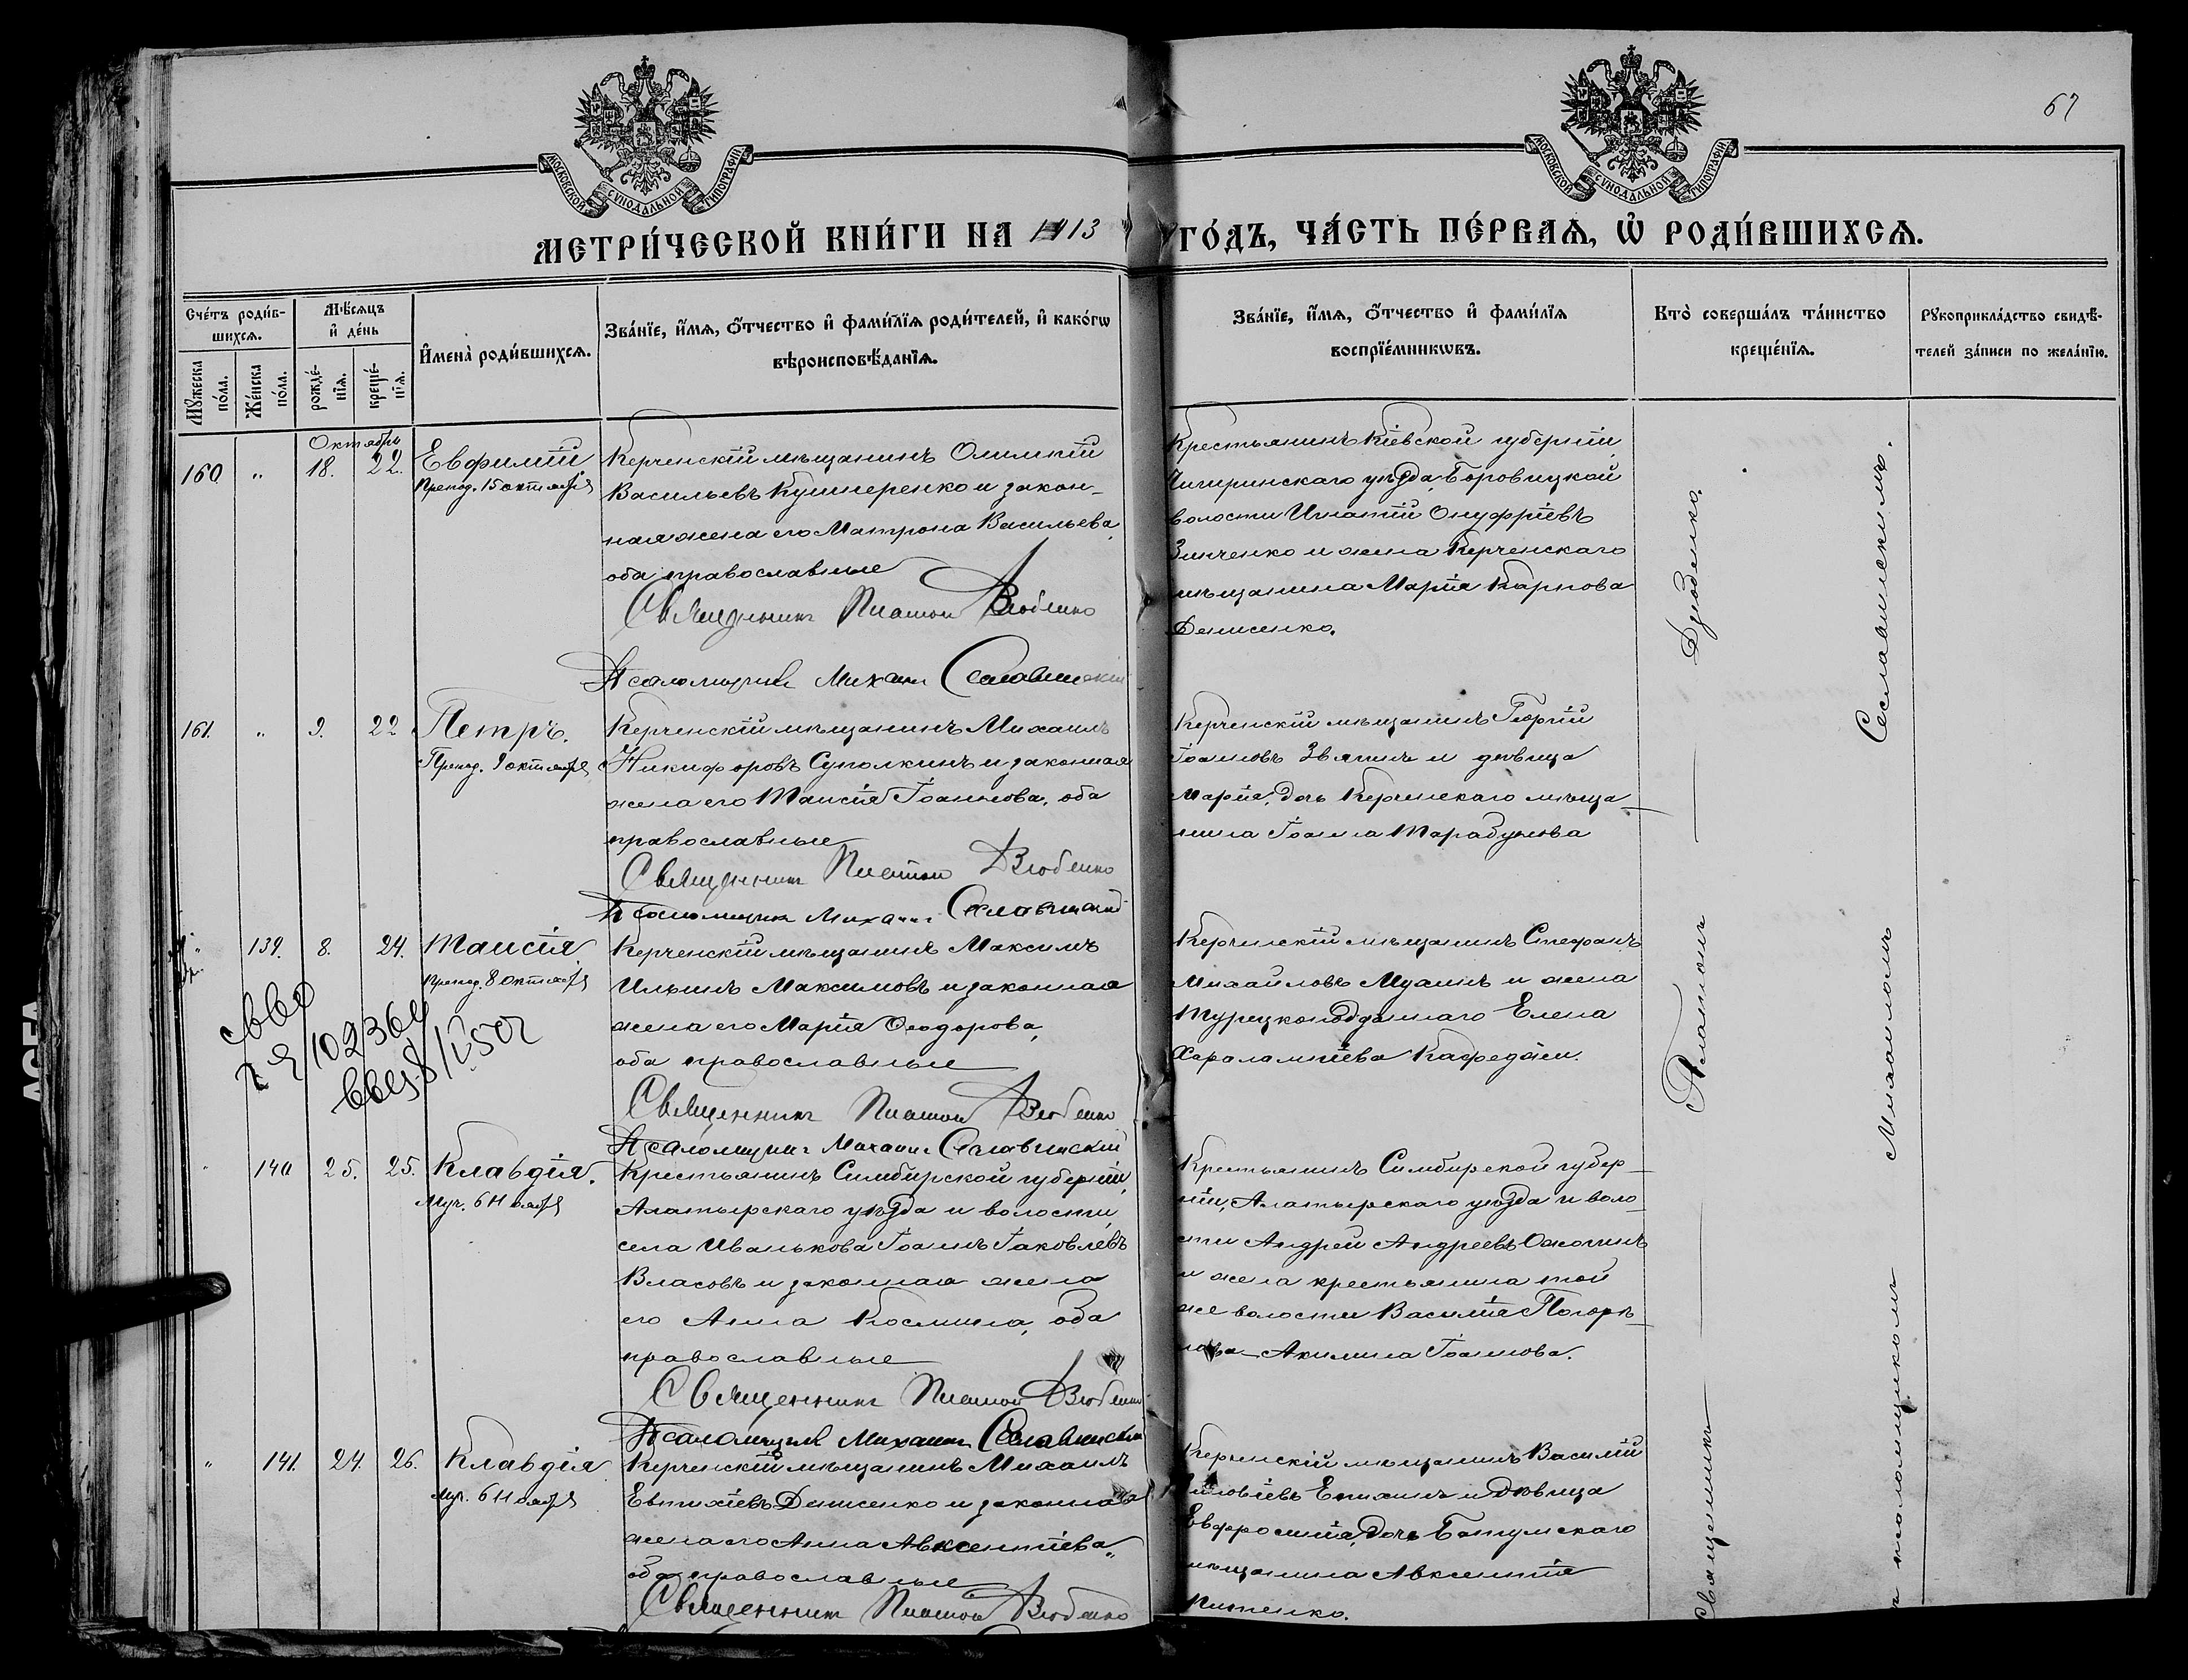 67
МОСКОВСКОЙ СѴНОДАЛЬНОЙ ТИПОГРАФІИ
МОСКОВСКОЙ СѴНОДАЛЬНОЙ ТИПОГРАФІИ
МЕТРИ́ЧЕСКОЙ КНИ́ГИ НА 1913 ГО́ДЪ, ЧА́СТЬ ПЕ́РВАѦ, Ѡ҆ РОДИ́ВШИХСѦ.
Сче́тъ роди́в-
шихсѧ.
Мѣ́сѧцъ
и҆ де́нь
И҆мена̀ роди́вшихсѧ.
Зва́нїе, и҆́мѧ, ѻ҆́тчество и҆ фами́лїѧ роди́телей, и҆ како́гѡ
вѣроисповѣ́данїѧ.
Зва́нїе, и҆́мѧ, ѻ҆́тчество и҆ фами́лїѧ
воспрїе́мникѡвъ.
Кто̀ соверша́лъ та́инство
креще́нїѧ.
Рꙋкоприкла́дство свидѣ́-
телей за́писи по жела́нїю.
Мꙋ́жеска
по́ла.
Же́нска
по́ла.
рожде́-
нїѧ.
креще́-
нїѧ.
Октябрь
160 " 18. 22. Евфимій
Препод. 15 октября
Керченскій мѣщанинъ Олимпій
Васильевъ Кушнеренко и закон-
ная жена его Матрона Васильева,
оба православные
Священникъ Платон Дзюбенко
Псаломщикъ Михаил Сеславинский
Крестьянинъ Кіевской губерніи,
Чигиринскаго уѣзда, Боровицкой
волости Игнатій Онуфріевъ
Зинченко и жена Керченскаго
мѣщанина Марія Карпова
Денисенко.
161. " 9. 22 Петръ.
Препод. 9 октября
Керченскій мѣщанинъ Михаилъ
Никифоровъ Суполкинъ и законная
жена его Таисія Іоаннова, оба
православные
Священникъ Платон Дзюбенко
Псаломщик Михаил Сеславинский
Керченскій мѣщанинъ Георгій
Іоанновъ Звягинъ и дѣвица
Марія, дочь Керченскаго мѣща-
нина Іоанна Тарабунова
" 139. 8. 24. Таисія
Препод. 8 октября
Керченскій мѣщанинъ Максимъ
Ильинъ Максимовъ и законная
жена его Марія Ѳеодорова,
оба православные
Священникъ Платон Дзюбенко
Псаломщикъ Михаил Сеславинский
Керченскій мѣщанинъ Стефанъ
Михайловъ Мухинъ и жена
Турецкоподданнаго Елена
Харалампіева
102364
" 140 25. 25. Клавдія.
Муч. 6 Ноября
Крестьянинъ Симбирской губерніи,
Алатырскаго уѣзда и волости,
села Иванькова Іоаннъ Іаковлевъ
Власовъ и законная жена
его Анна Косьмина, оба
православные
Священникъ Платон Дзюбенко
Псаломщикъ Михаил Сеславинский
Крестьянинъ Симбирской губер-
ніи, Алатырскаго уѣзда и воло-
сти Андрей Андреевъ
и жена крестьянина той
же волости Василія Погорѣ-
лова - Акилина Іоаннова.
" 141. 24. 26. Клавдія
Муч. 6 Ноября
Керченскій мѣщанинъ Михаилъ
Евтихіевъ Денисенко и законная
жена его Анна Авксентіева,
оба православные
Священникъ Платон Дзюбенко
Керченскій мѣщанинъ Василій
Епихинъ и дѣвица
Евфросинія, дочь Батумскаго
мѣщанина Авксентія
Священникъ Платонъ Дзюбенко.
Псаломщикомъ Михаиломъ Сеславинскимъ.